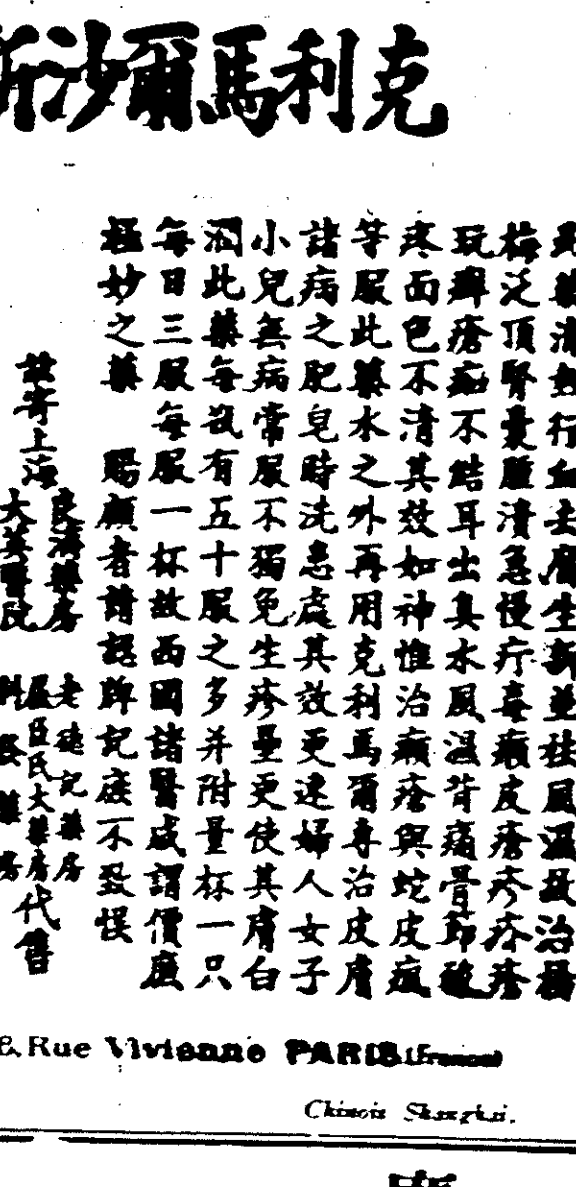 克利馬爾沙
此藥清熱行血去腐生新並祛風濕故治楊
梅泛頂腎囊腫潰急慢疔毒癩皮瘡疹疥瘡
玩癬瘡癩不結耳出臭水風濕背痛骨節酸
疼面色不清其效如神惟治癩瘡與蛇皮瘋
等服此藥水之外再用克利馬爾專治皮膚
諸病之肥皂時洗患處其效更速婦人女子
小兒無病常服不獨免生疹壘更使其膚白
潤此藥每瓶有五十服之多并附量杯一只
每日三服每服一杯故西國諸醫咸謂價廉
極妙之藥 賜顧者請認牌記庶不致悮
寄上海
良濟藥房
大英醫院
老德記藥房
屈臣氏大藥房
科發藥房
代售
8, Rue Vivienne PARIS (France)
Chinois Shanghai.